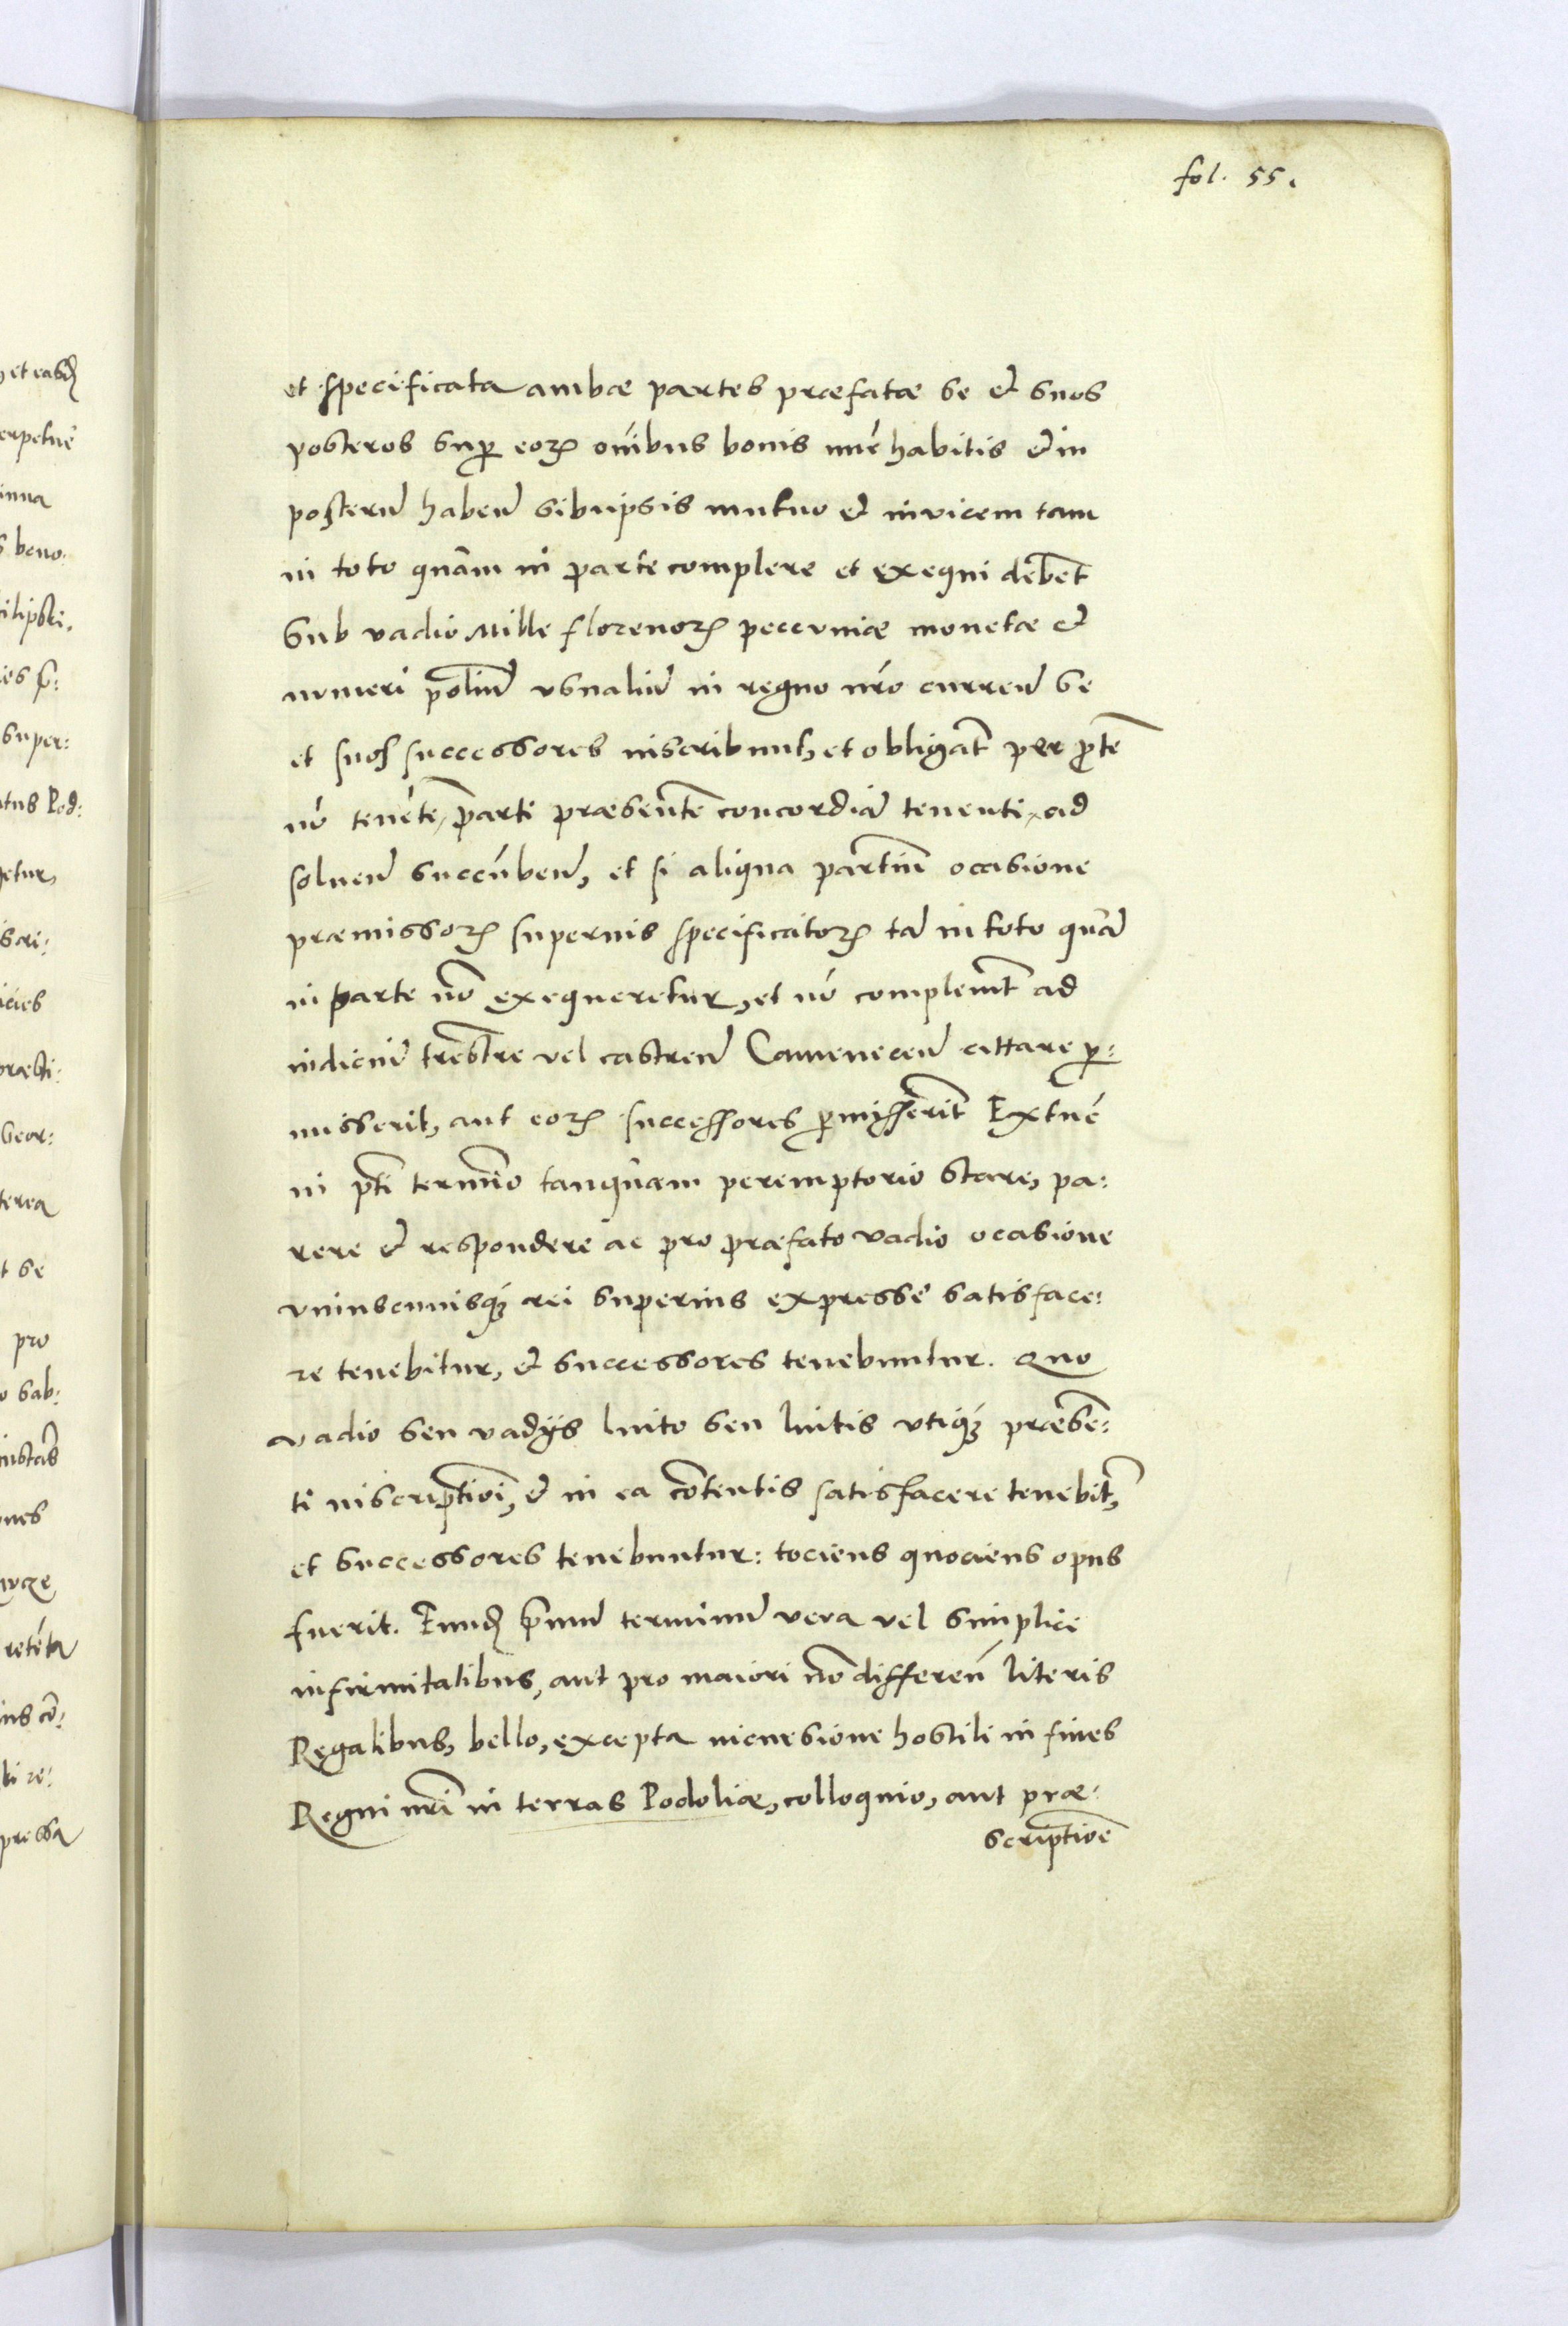 fol. 55.
et specificata ambæ partes præfatæ se et suos
posteros sup eoꝝ oĩbus bonis nũc habitis et in
posterũ habeñ sibiipsis mutuo et invicem tam
in toto quàm in parte complere et exequi debẽt
Sub vadio Mille florenoꝝ pecuniæ monetæ et
numeri poliũ usualiũ in regno nro curreñ se
et suos successores inscribunt, et obligãt per ptẽ
nõ tenẽtẽ, parti præsentẽ concordiã tenenti, ad
soluenđ succũbenđ, et si aliqua partiũ occasione
præmissoꝝ superius specificatoꝝ tã in toto quã
in parte nõ exequeretur, et nõ complevit ad
iudiciũ trẽstre vel castreñ Cameneceñ cittare p:
misserit, aut eoꝝ successores pmisserĩt Extũc
in pti termino tanquam peremptorio stare, pa:
rere et respondere ac pro præfato vadio occasione
uniuscuiusqꝫ rei superius expresse satisface:
re tenebitur, et successores tenebuntur. Quo
vadio seu vadijs luito seu luitis utiqꝫ præsen:
ti inscriptioni, et in ea cõtentis satisfacere tenebit,
et successores tenebuntur: tociens quociens opus
fuerit. Eunđ primũ terminũ vera vel simplici
infirmitatibus, aut pro maiori nõ differeñ literis
Regalibus, bello, excepta incursione hostili in fines
Regni nri in terras Podoliæ, colloquio, aut præ:
scriptionẽ